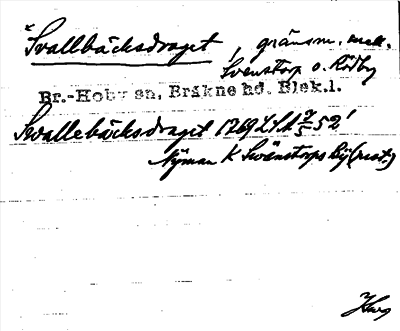 *Svallbäcksdraget, gränsm. mell.
Svenstorp o. Röaby
Br.-Hoby sn, Bräkne hd. Blek.l.
Svallebäcksdraget 1769 LSA
Nyman K Svänstorps By (rest.)